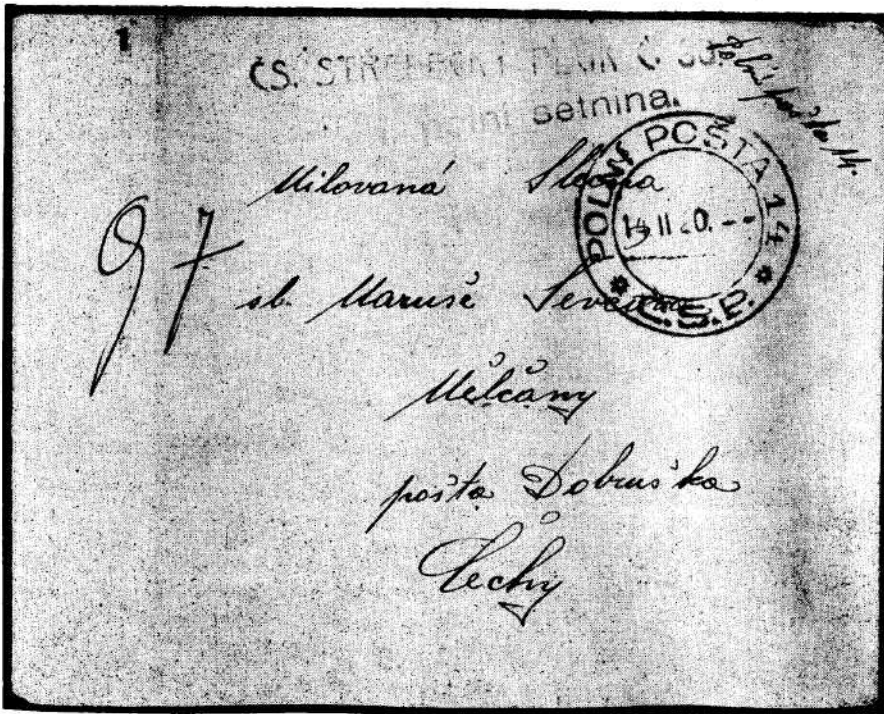 1
ČS. STŘELECKÝ PLUK Č.
setnina.
Polní pošta 14.
POLNÍ POŠTA 14
II
Č.S.P.
Milovaná Slečna
97
sl. Maruše
Mělčany
pošta Dobruška
Čechy